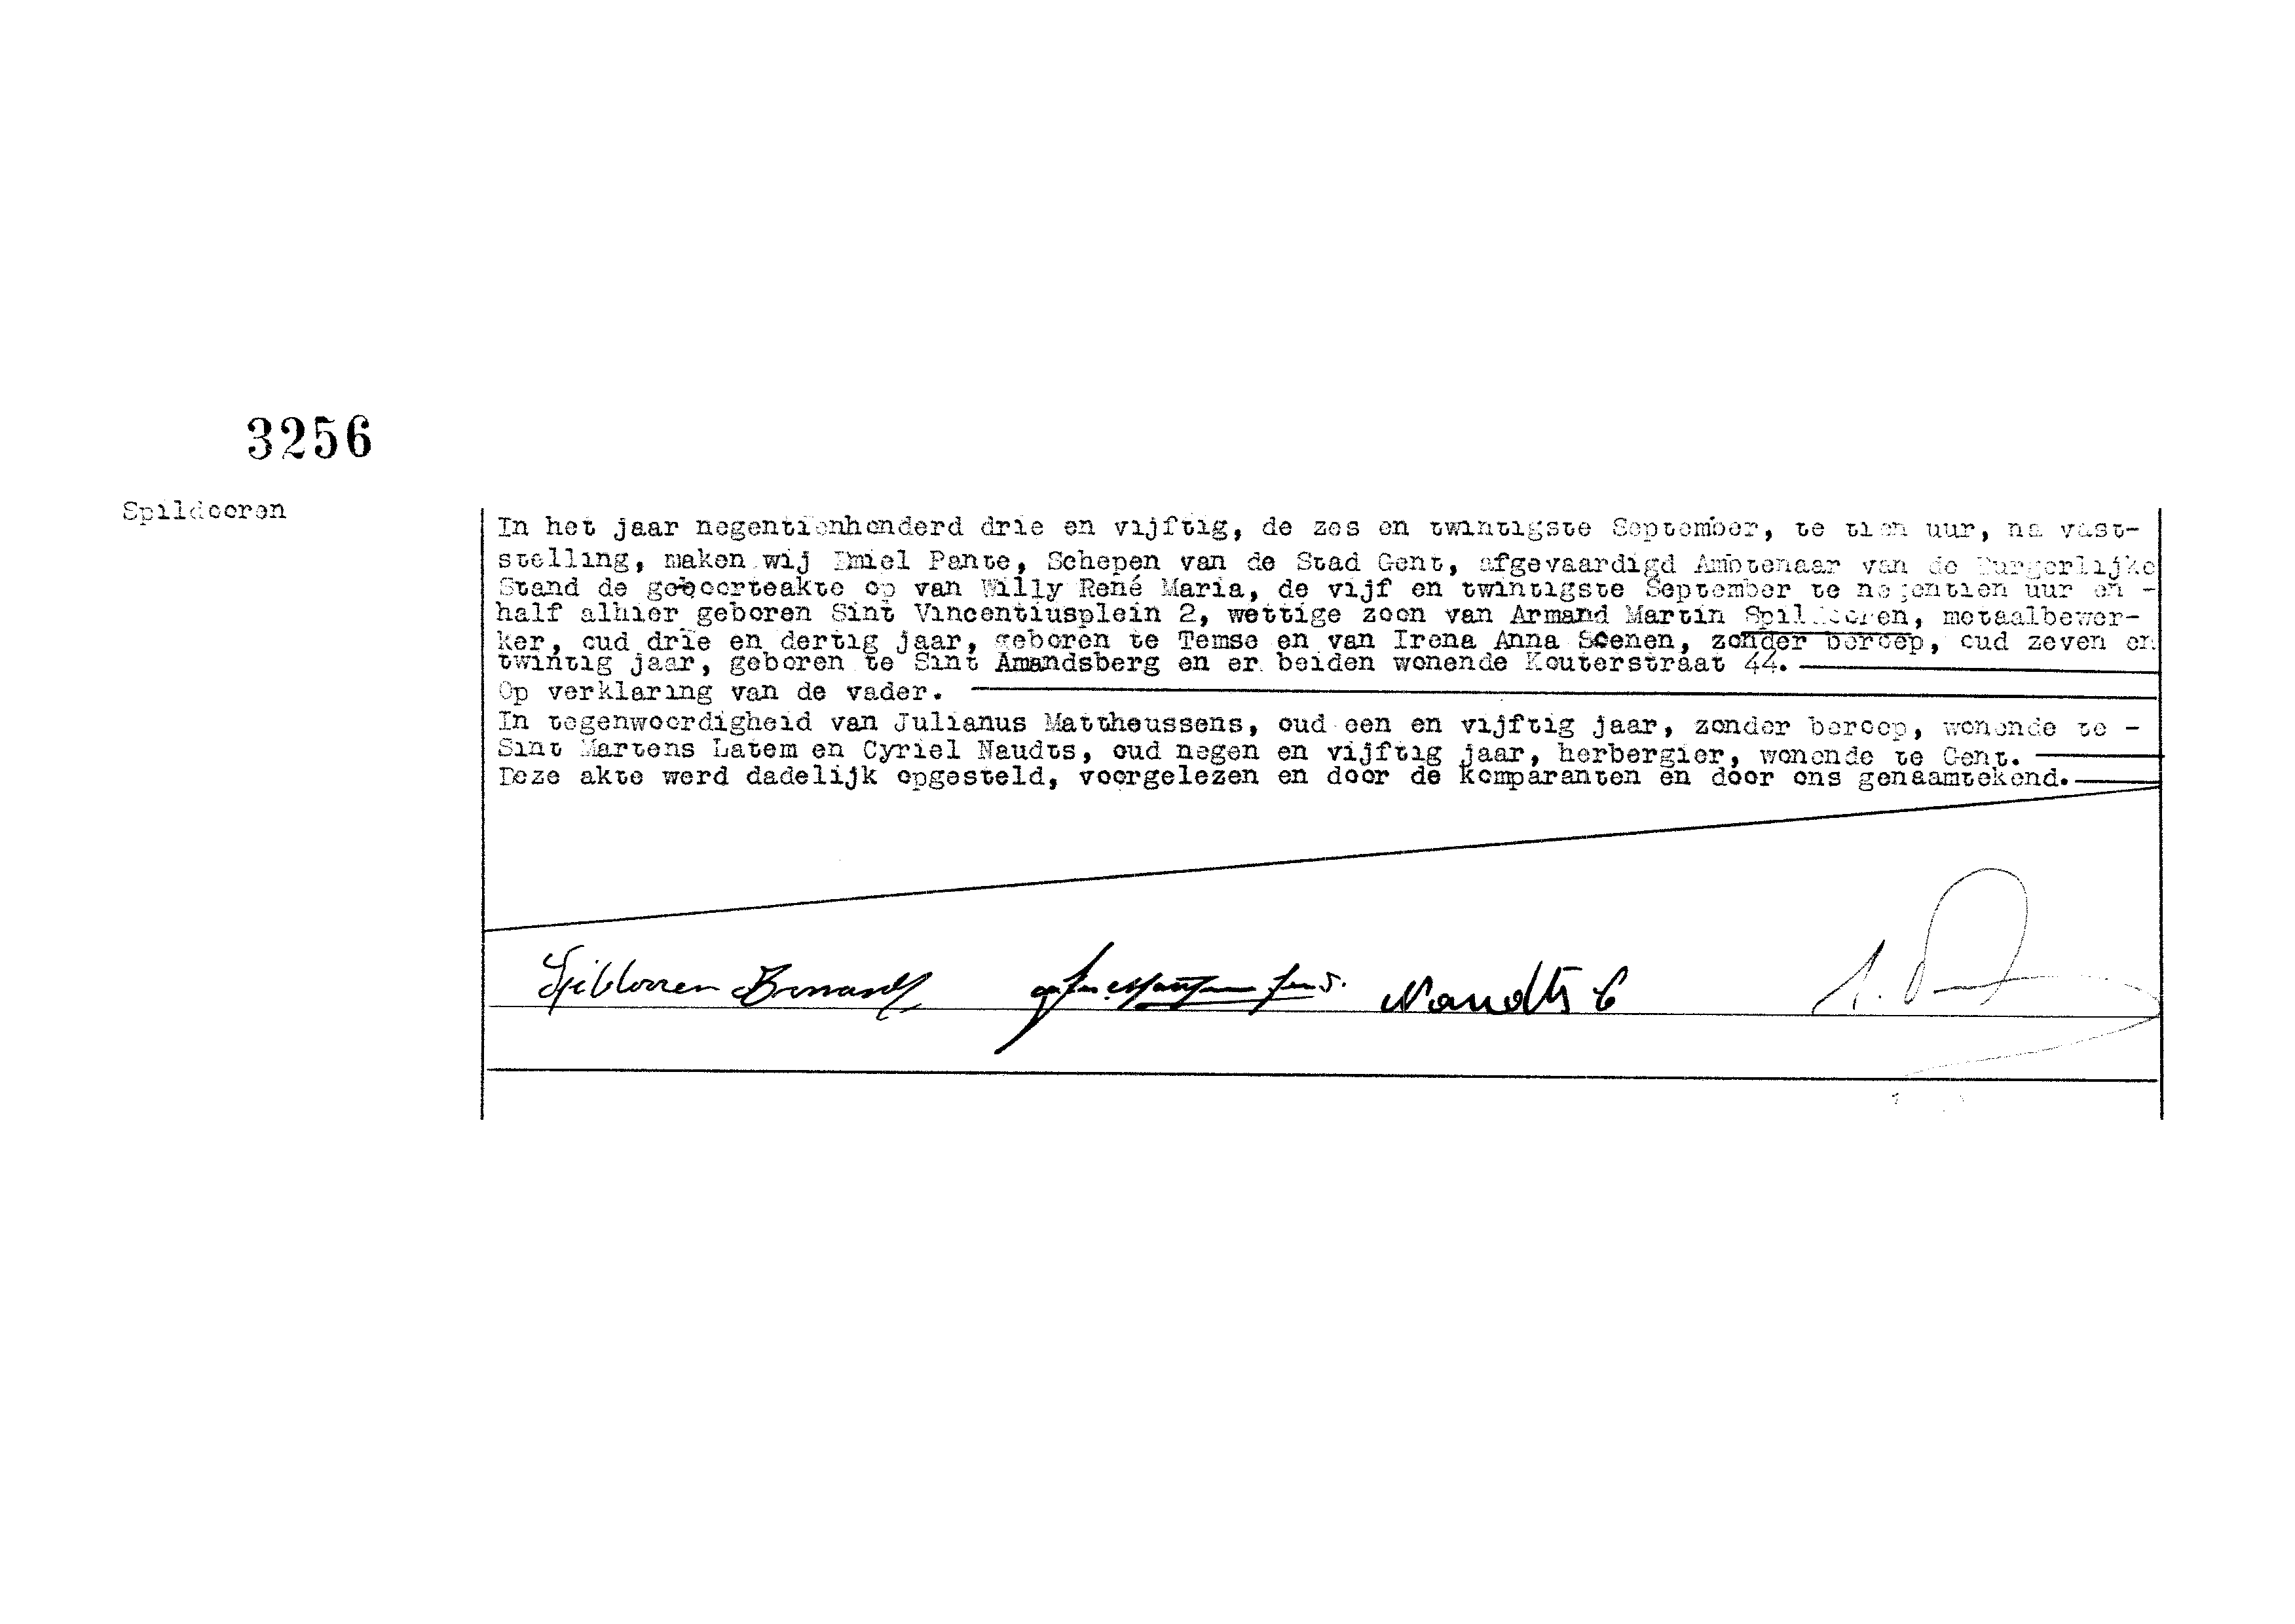 3256
Spildooren
In het jaar negentienhonderd drie en vijftig, de zes en twintigste September, te tien uur, na vast-
stelling, maken wij Emiel Pante, Schepen van de Stad Gent, afgevaardigd Ambtenaar van de Burgerlijke
Stand de geboorteakte op van Willy René Maria, de vijf en twintigste September te negentien uur en -
half alhier geboren Sint Vincentiusplein 2, wettige zoon van Armand Martin Spildooren, metaalbewer-
ker, oud drie en dertig jaar, geboren te Temse en van Irena Anna Soenen, zonder beroep, oud zeven en
twintig jaar, geboren te Sint Amandsberg en er beiden wonende Kouterstraat 44.
Op verklaring van de vader.
In tegenwoordigheid van Julianus Mattheussens, oud een en vijftig jaar, zonder beroep, wonende te -
Sint Martens Latem en Cyriel Naudts, oud negen en vijftig jaar, herbergier, wonende te Gent.
Deze akte werd dadelijk opgesteld, voorgelezen en door de komparanten en door ons genaamtekend.
Spildooren Armand Naudts C